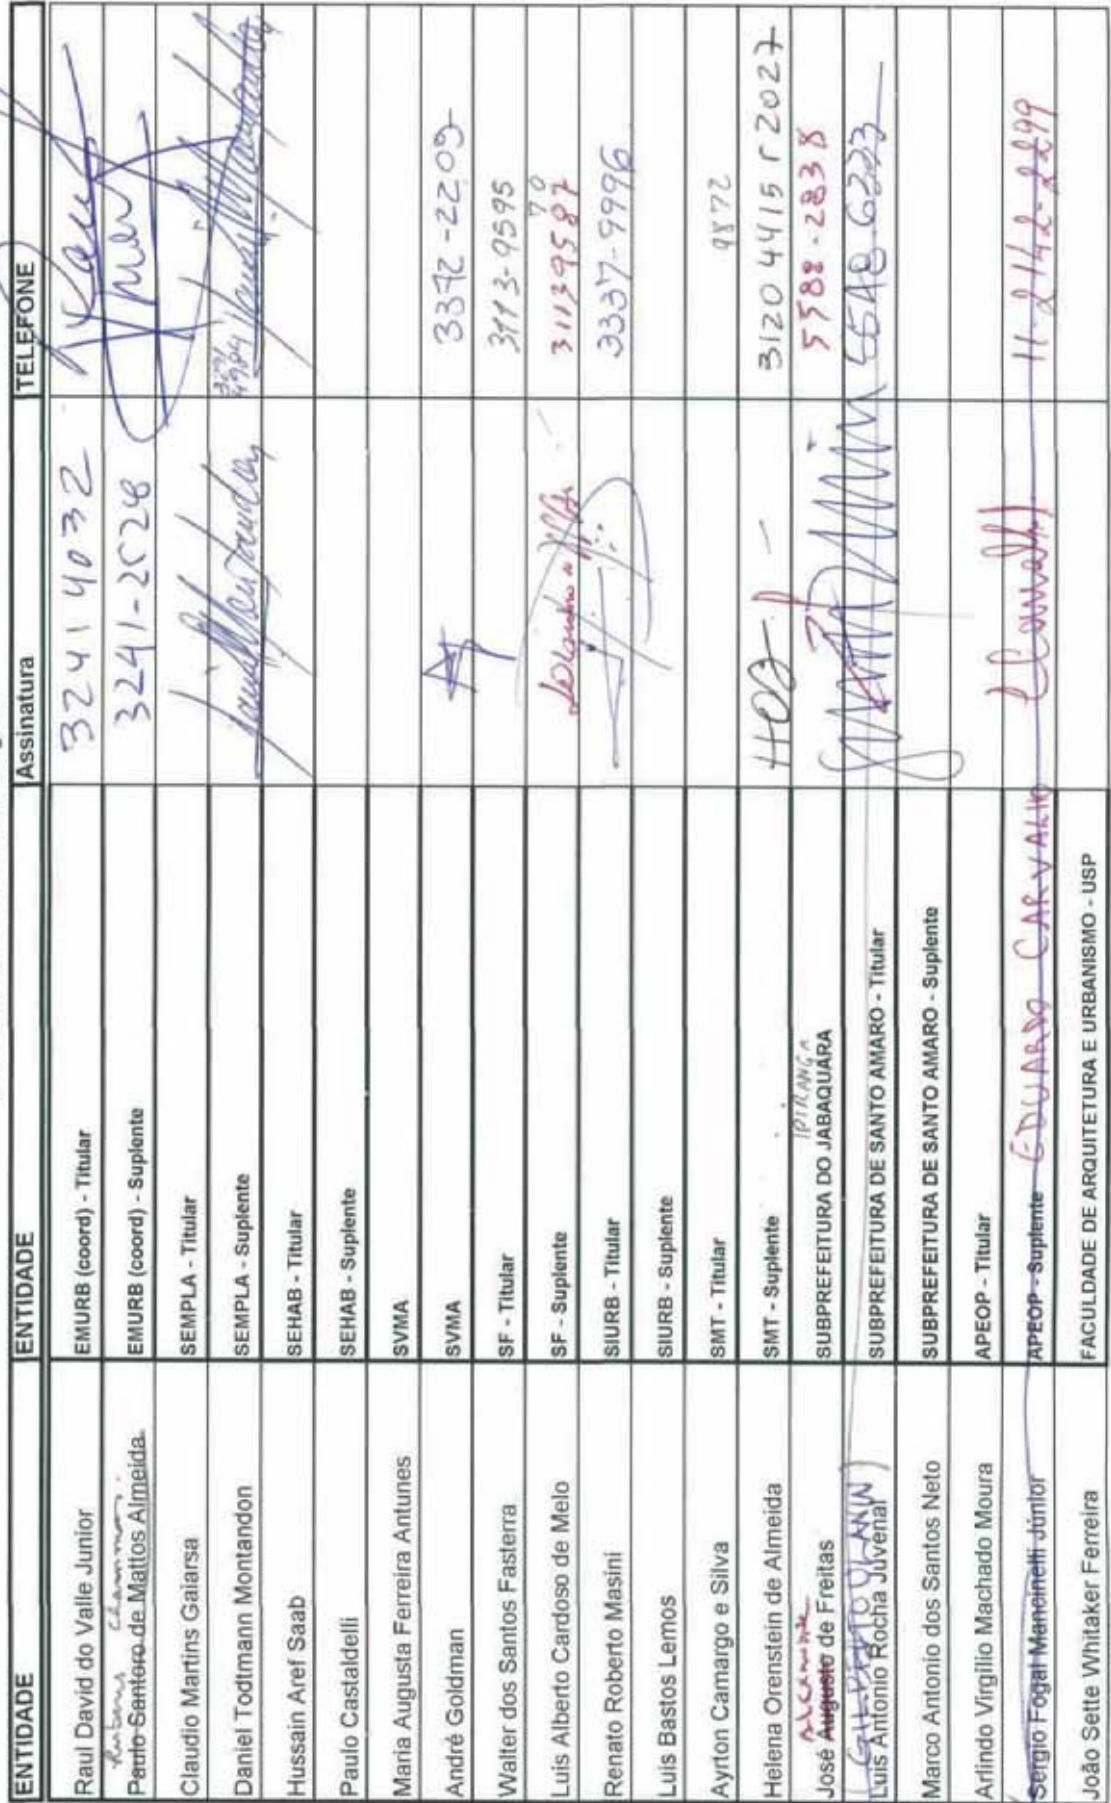 ENTIDADE ENTIDADE Assinatura TELEFONE
Raul David do Valle Junior EMURB (coord) - Titular 3241 4032
Rubens Chammas
Paulo Santoro de Mattos Almeida EMURB (coord) - Suplente 3241-2528
Claudio Martins Gaiarsa SEMPLA - Titular
Daniel Todtmann Montandon SEMPLA - Suplente
Hussain Aref Saab SEHAB - Titular
Paulo Castaldelli SEHAB - Suplente
Maria Augusta Ferreira Antunes SVMA
André Goldman SVMA 3372-2209
Walter dos Santos Fasterra SF - Titular 3113-9595
Luis Alberto Cardoso de Melo SF - Suplente 31139587 70
Renato Roberto Masini SIURB - Titular 3337-9996
Luis Bastos Lemos SIURB - Suplente
Ayrton Camargo e Silva SMT - Titular 9872
Helena Orenstein de Almeida SMT - Suplente 3120 4415 r 2027
José Augusto de Freitas SUBPREFEITURA DO JABAQUARA IPIRANGA 5588-2838
Luis Antonio Rocha Juvenal SUBPREFEITURA DE SANTO AMARO - Titular 5548.6223
Marco Antonio dos Santos Neto SUBPREFEITURA DE SANTO AMARO - Suplente
Arlindo Virgílio Machado Moura APEOP - Titular
Sérgio Fogal Mancinelli Júnior APEOP - Suplente EDUARDO CARVALHO 11-2142-2299
João Sette Whitaker Ferreira FACULDADE DE ARQUITETURA E URBANISMO - USP